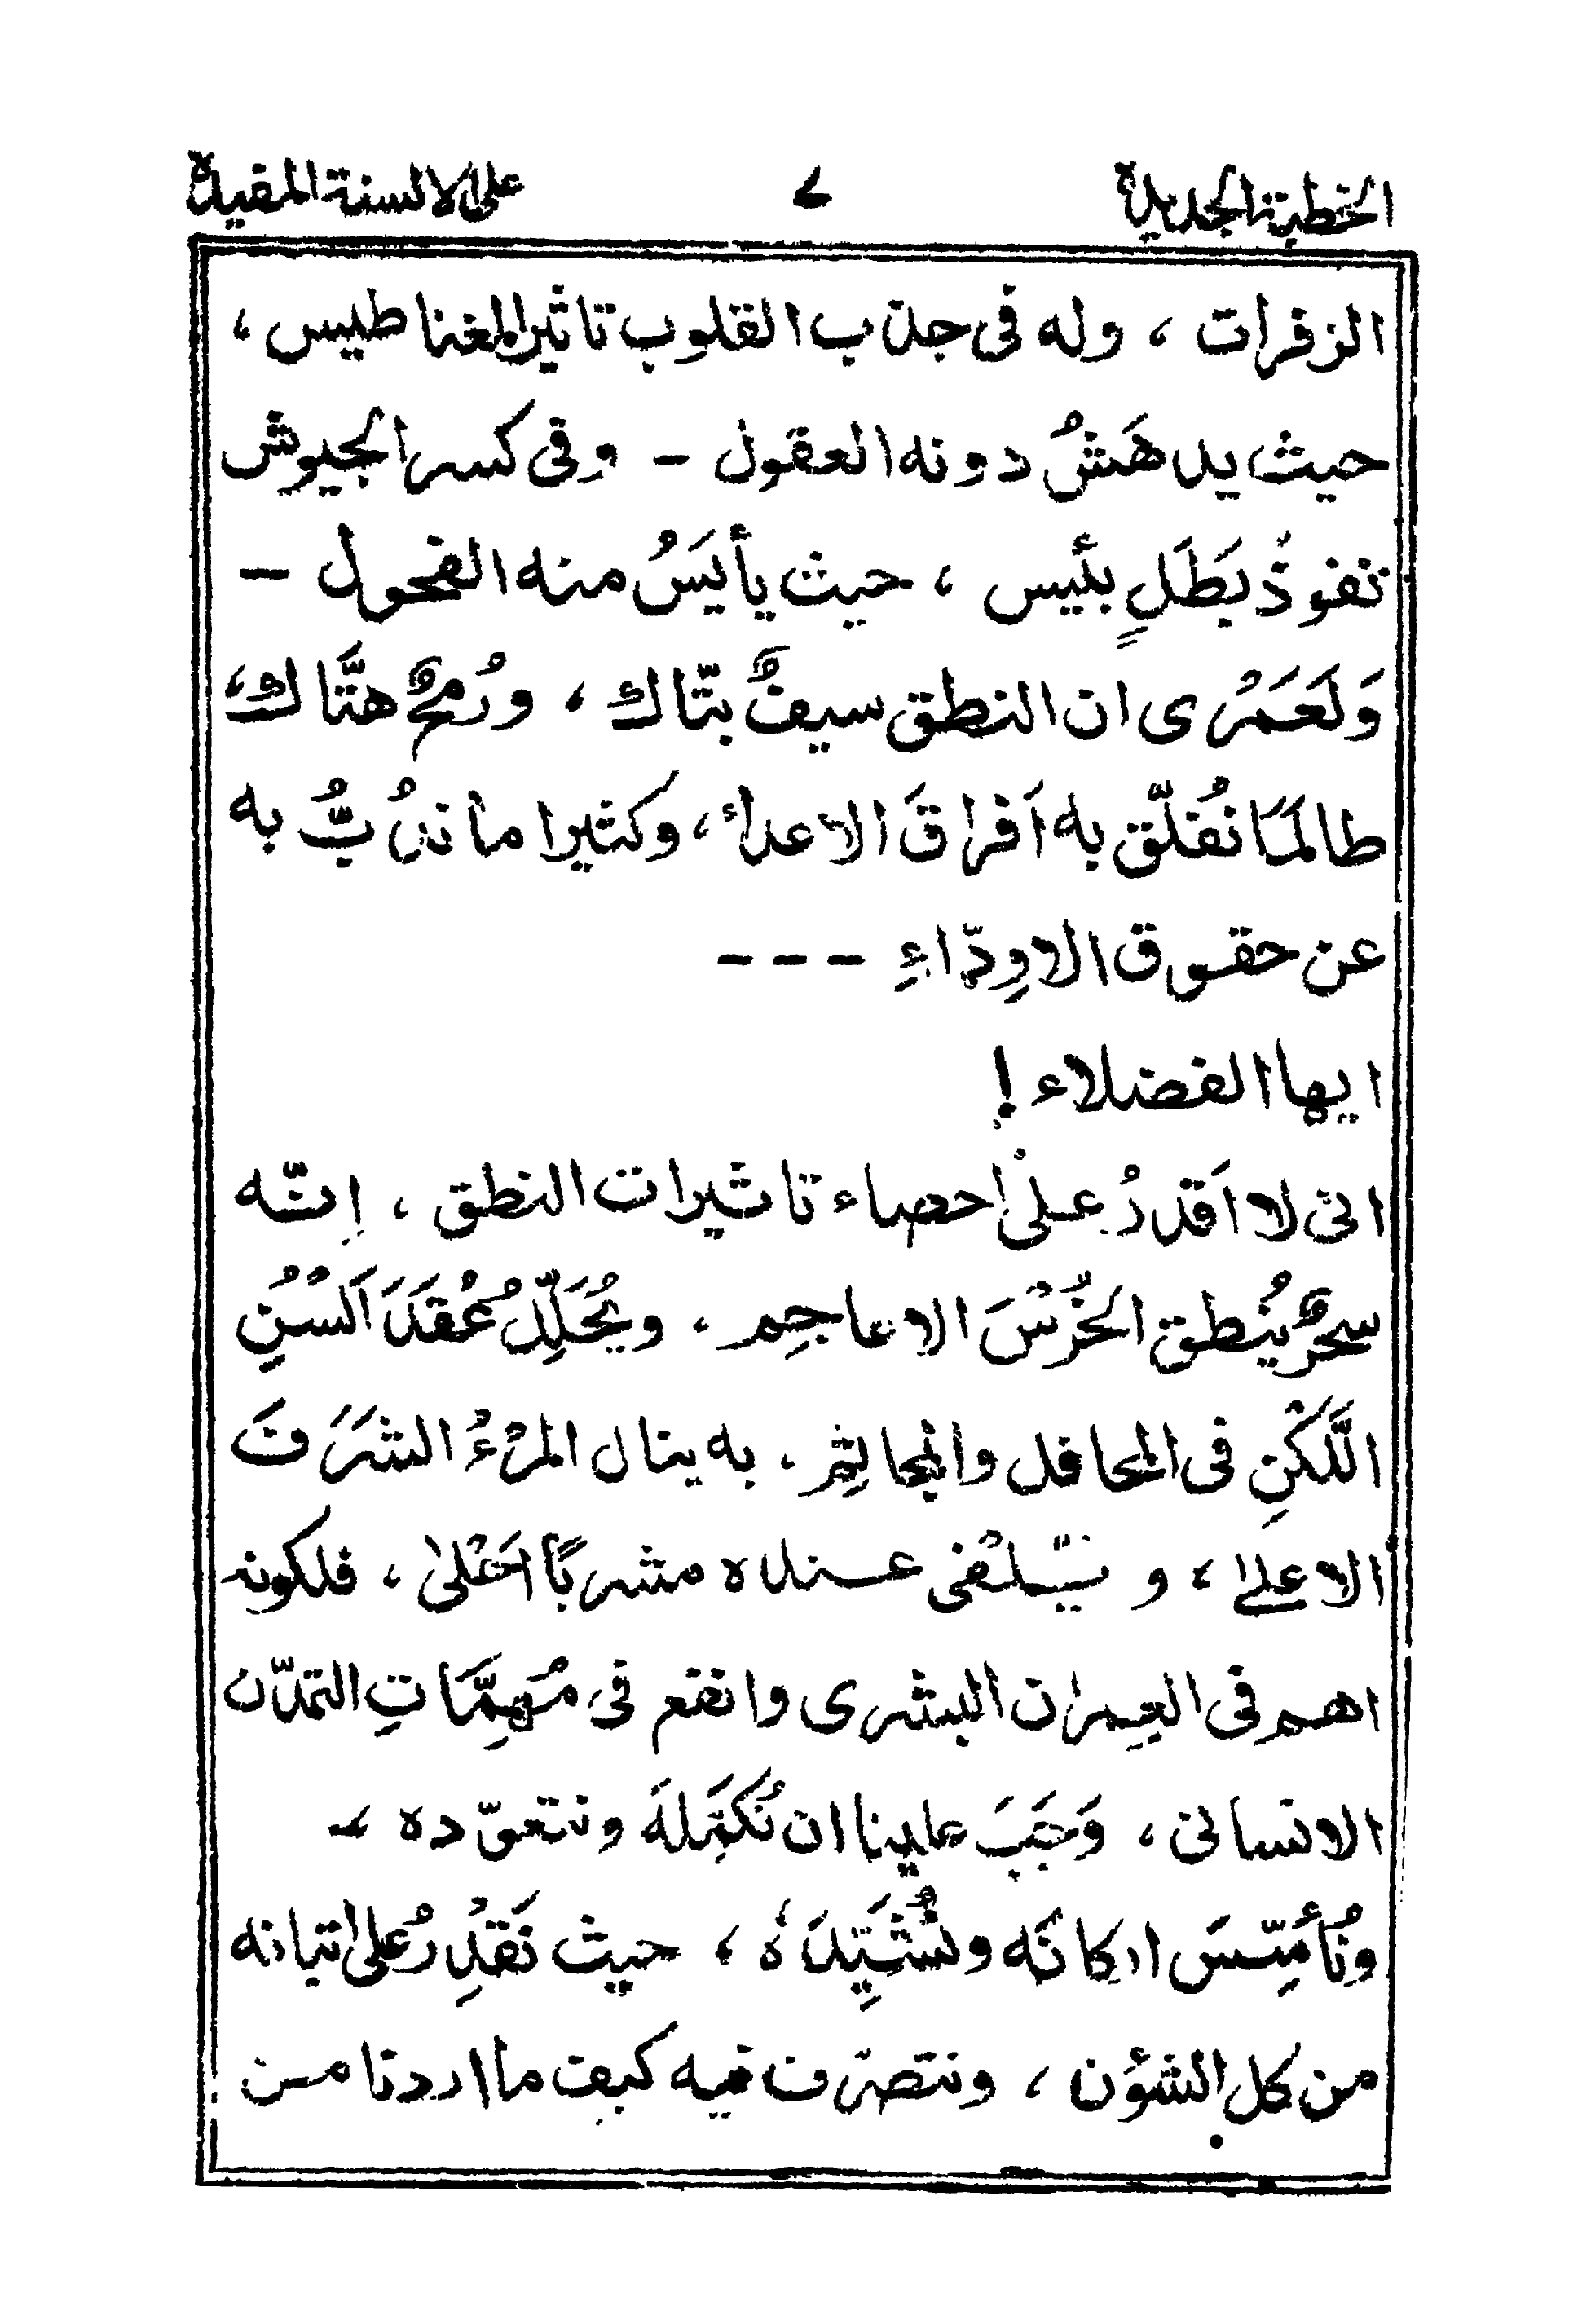 الخطبة الجديدة ٧ على الالسنة المفيدة
الزفرات ، وله فى جذب القلوب تاثير المغناطيس ،
حيث يدهَشُ دونه العقول - وفى كسر الجيوش
نفوذُ بَطَلٍ بئيس ، حيث يأيَسُ منه الفحول -
وَلَعَمْرُى ان النطق سيفٌ بتّاك ، ورُمحٌ هتَّاك ،
طالمَا نُفلّق به اَفراقَ الاعداء ، وكثيرا ما نذُبُّ به
عن حقوق الاوِدّاءِ - - -
ايها الفضلاء !
انى لا اَقدرُ على احصاء تاثيرات النطق ، اِنّه
سحرٌ يُنطق الخُرْسَ الاعاجِم ، ويُحَلِّلُ عُقَدَ اَلْسُنِ
اللَّكْنِ فى المحافل والمجاثِم ، به ينال المرْءُ الشرَفَ
الاعلىٰ ، و يَتلقى عنده مشربًا اَحْلىٰ ، فلكونه
اهم فى العِمران البشرى وانفع فى مُهِمَّاتِ التمدّن
الانسانى ، وَجَبَ علينا ان نُكَمِّلهَ ونتعوّده ،
ونُأسِّسَ اركانَه ونُشَيِّدَهٗ ، حيث نَقدِرُ على اتيانه
من كل الشؤن ، ونتصرّف فيه كيف ما اردنا من